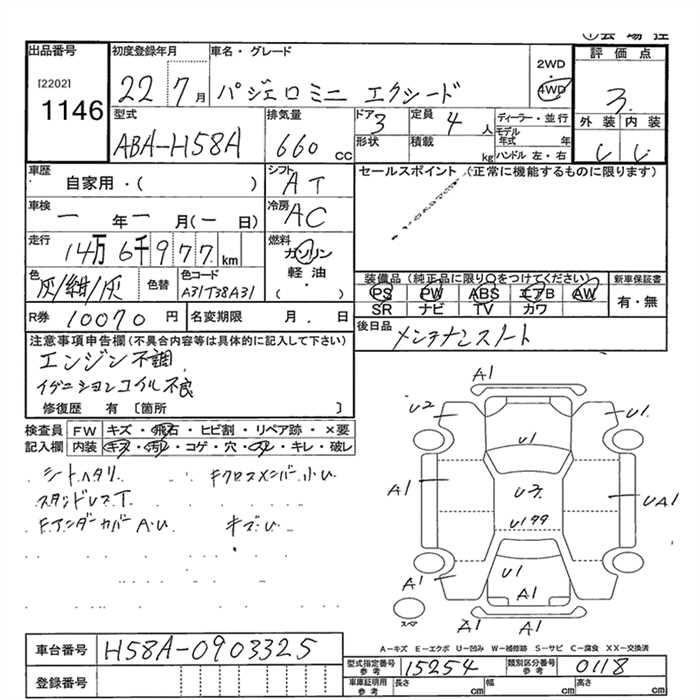 ①会場控
出品番号
[2202]
1146
初度登録年月
22 7 月
車名・グレード
パジェロミニ エクシード
2WD
4WD
評価点
3
外装 内装
型式
ABA-H58A
排気量
660 cc
ドア 3
形状
定員 4 人
積載 kg
ディーラー・並行
モデル年式 年
ハンドル 左・右
車歴
自家用・( )
シフト
AT
セールスポイント (正常に機能するものに限ります)
車検
一 年 一 月(一 日)
冷房
AC
走行
14万 6千 9 7 7 km
燃料
ガソリン
軽油
( ・ )
色
灰/紺/灰
色替
色コード
A31T38A31
装備品(純正品に限り○をつけてください)
PS PW ABS エアB AW
SR ナビ TV カワ
新車保証書
有・無
R券 10070 円
名変期限 月 . 日
後日品
メンテナンスノート
注意事項申告欄(不具合内容等は具体的に記入して下さい)
エンジン不調
イグニションコイル不良
修復歴 有〔箇所 〕
検査員 FW キズ・飛石・ヒビ割・リペア跡・×要
記入欄 内装 キズ・汚レ・コゲ・穴・スレ・キレ・破レ
シートヘタリ
FクロスメンバーU小
スタッドレスT
FインダーカバーAU キズU
A1
U2 U1
U1
A1 U3 UA1
U177
A1 U1 A1
A1
スペア
A1 A1
A-キズ E-エクボ U-凹み W-補修跡 S-サビ C-腐食 XX-交換済
車台番号 H58A-0903325
登録番号
型式指定番号 参考 15254
類別区分番号 参考 0118
車庫証明用 参考
長さ cm 幅 cm 高さ cm